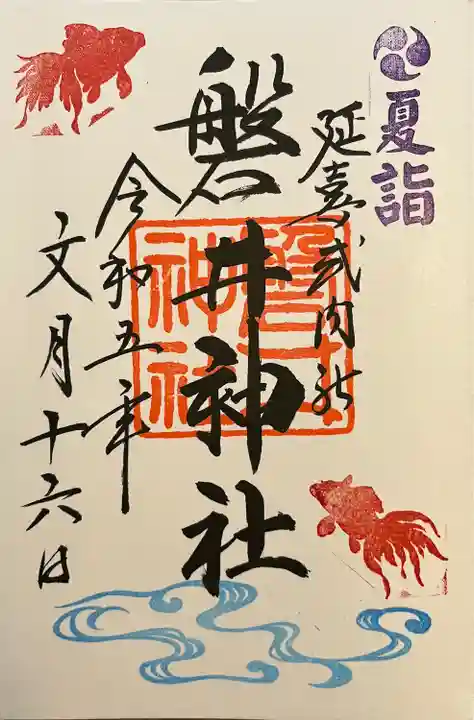 夏詣
延喜式内社
磐井神社
磐井神社
令和五年
文月十六日